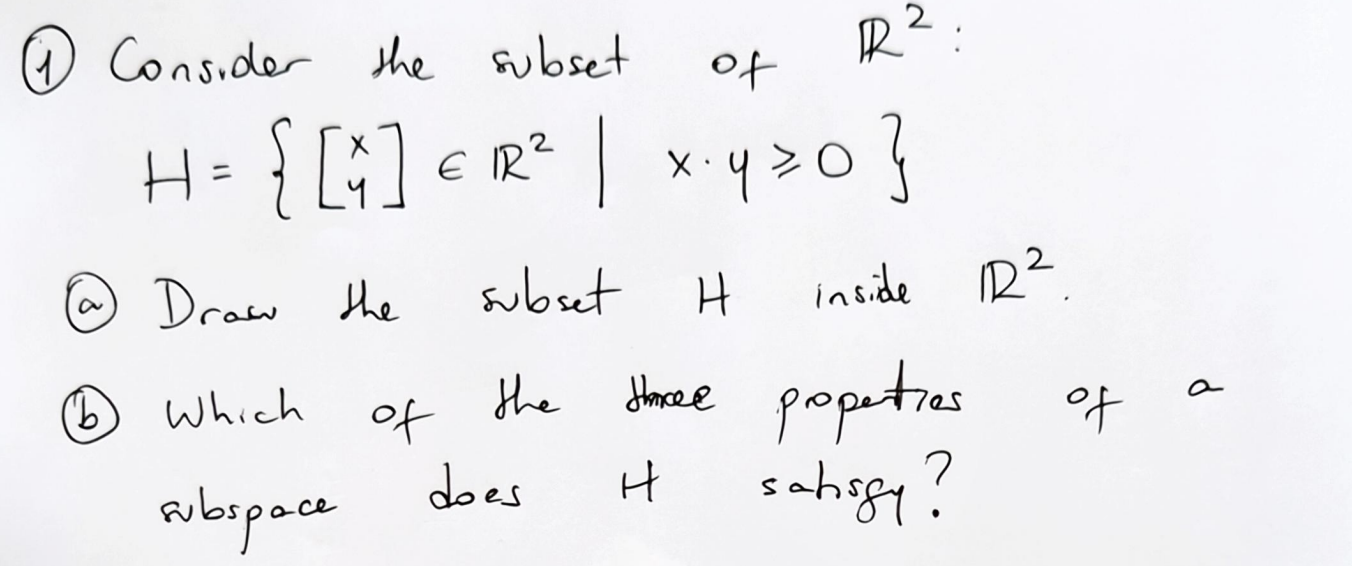 ① Consider the subset of ℝ²:
H = { [x y] ∈ ℝ² | x · y ≥ 0 }
ⓐ Draw the subset H inside ℝ².
ⓑ Which of the three properties of a
subspace does H satisfy?